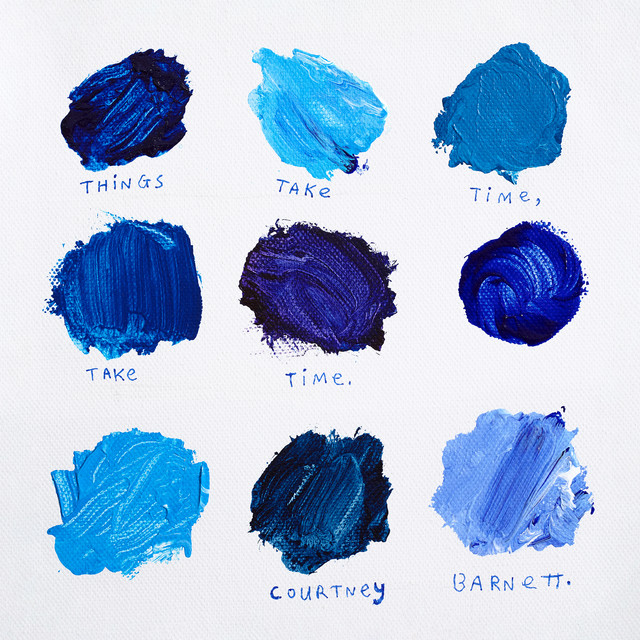 THiNGS TAKe TiMe,
TAKe TiMe.
COURTNey BARNeTT.